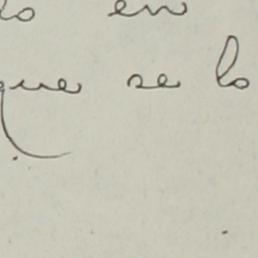 en
que se lo